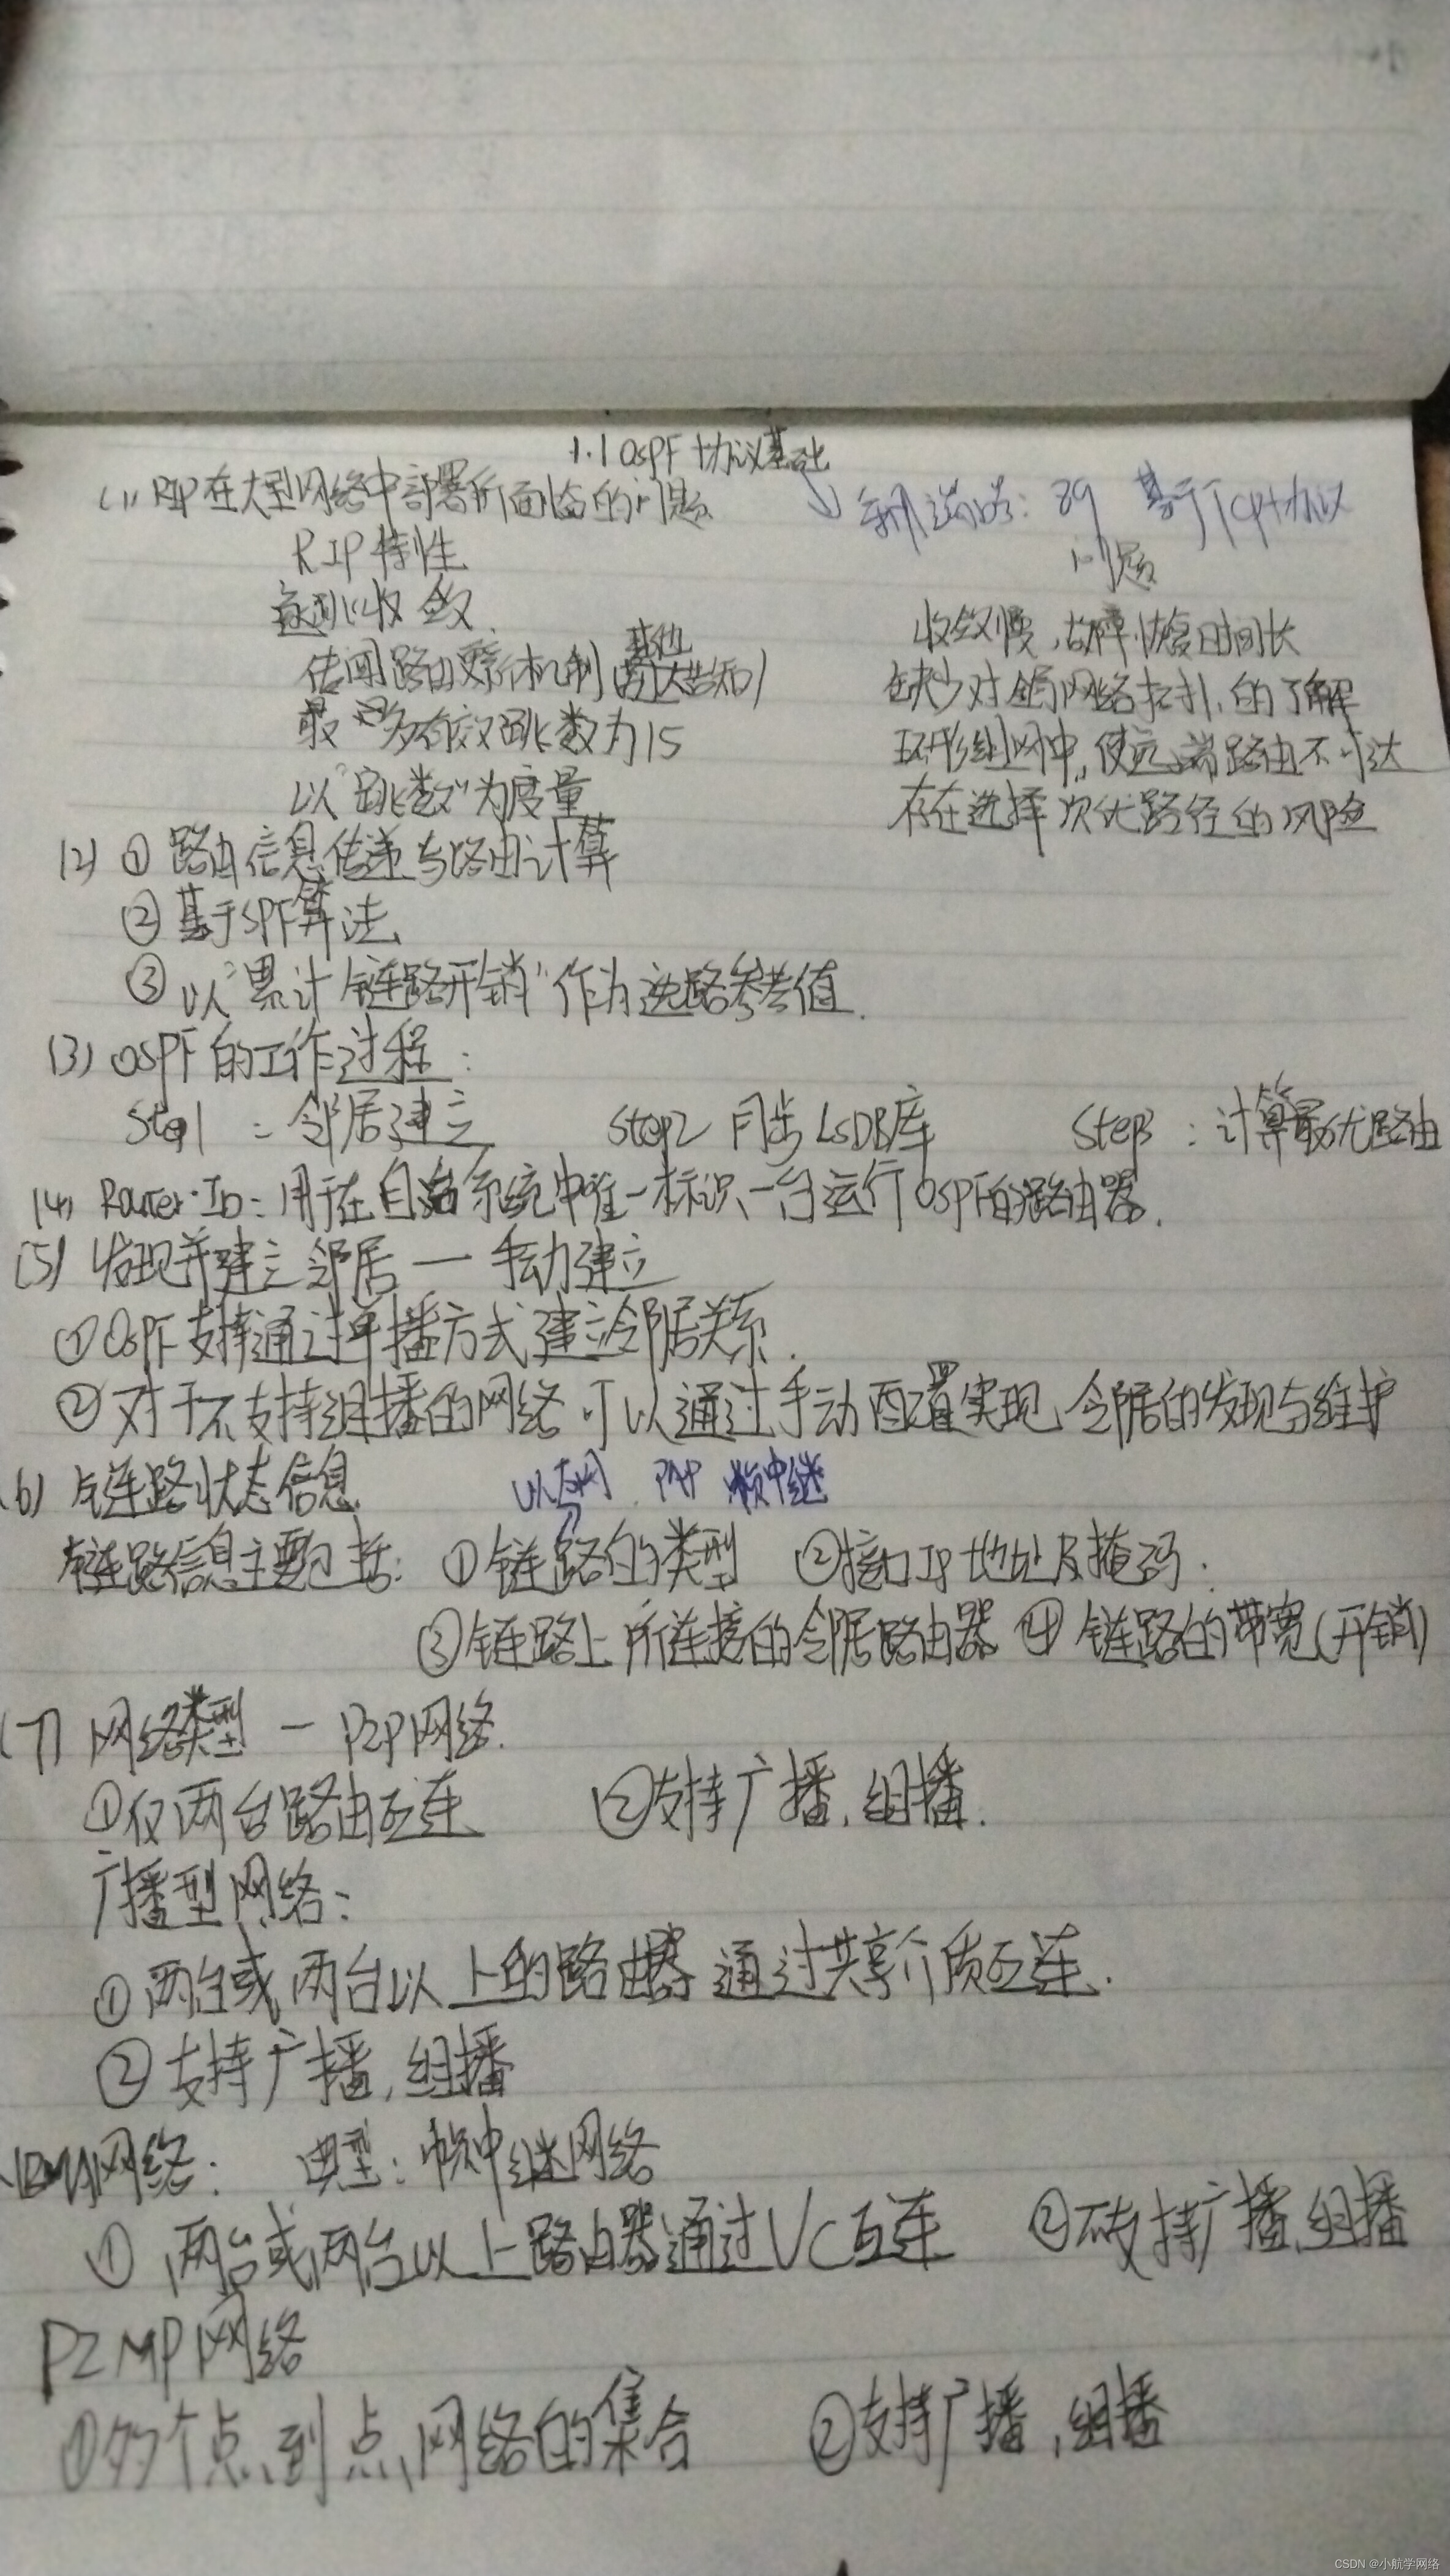 1.1 OSPF 协议基础
(1) RIP在大型网络中部署所面临的问题
端口号: 89 基于TCP协议
RIP特性 问题
逐跳收敛 收敛慢,故障恢复时间长
传闻路由更新机制(告知) 缺少对全局网络拓扑的了解
最多有效跳数为15 环形组网中,使远端路由不可达
以"跳数"为度量 存在选择次优路径的风险
(2) ① 路由信息传递与路由计算
② 基于SPF算法
③ 以"累计链路开销"作为选路参考值.
(3) OSPF的工作过程:
Step1 : 邻居建立 Step2 同步LSDB库 Step3 : 计算最优路由
(4) Router·ID: 用于在自治系统中唯一标识一台运行OSPF的路由器.
(5) 发现并建立邻居 — 手动建立
① OSPF支持通过单播方式建立邻居关系.
② 对于不支持组播的网络可以通过手动配置实现邻居的发现与维护
(6) 链路状态信息 以太网 PPP 帧中继
链路信息主要包括: ①链路的类型 ②接口IP地址及掩码:
③链路上所连接的邻居路由器 ④ 链路的带宽(开销)
(7) 网络类型 — P2P网络.
①仅两台路由互连 ②支持广播,组播.
广播型网络:
① 两台或两台以上的路由器通过共享介质互连.
② 支持广播,组播
NBMA网络: 典型: 帧中继网络
① 两台或两台以上路由器通过VC互连 ②不支持广播,组播
P2MP网络
①多个点到点网络的集合 ②支持广播,组播
CSDN @小航学网络